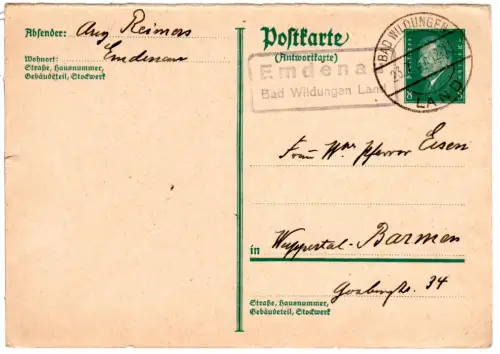 Absender: Aug Reimers
Wohnort: Emdenau
Straße, Hausnummer,
Gebäudeteil, Stockwerk
Postkarte
(Antwortkarte)
Emdena
Bad Wildungen Land
BAD WILDUNGEN
LAND
8
Frau Ww. Pfarrer Eisen
in Wuppertal-Barmen
34
Straße, Hausnummer,
Gebäudeteil, Stockwerk